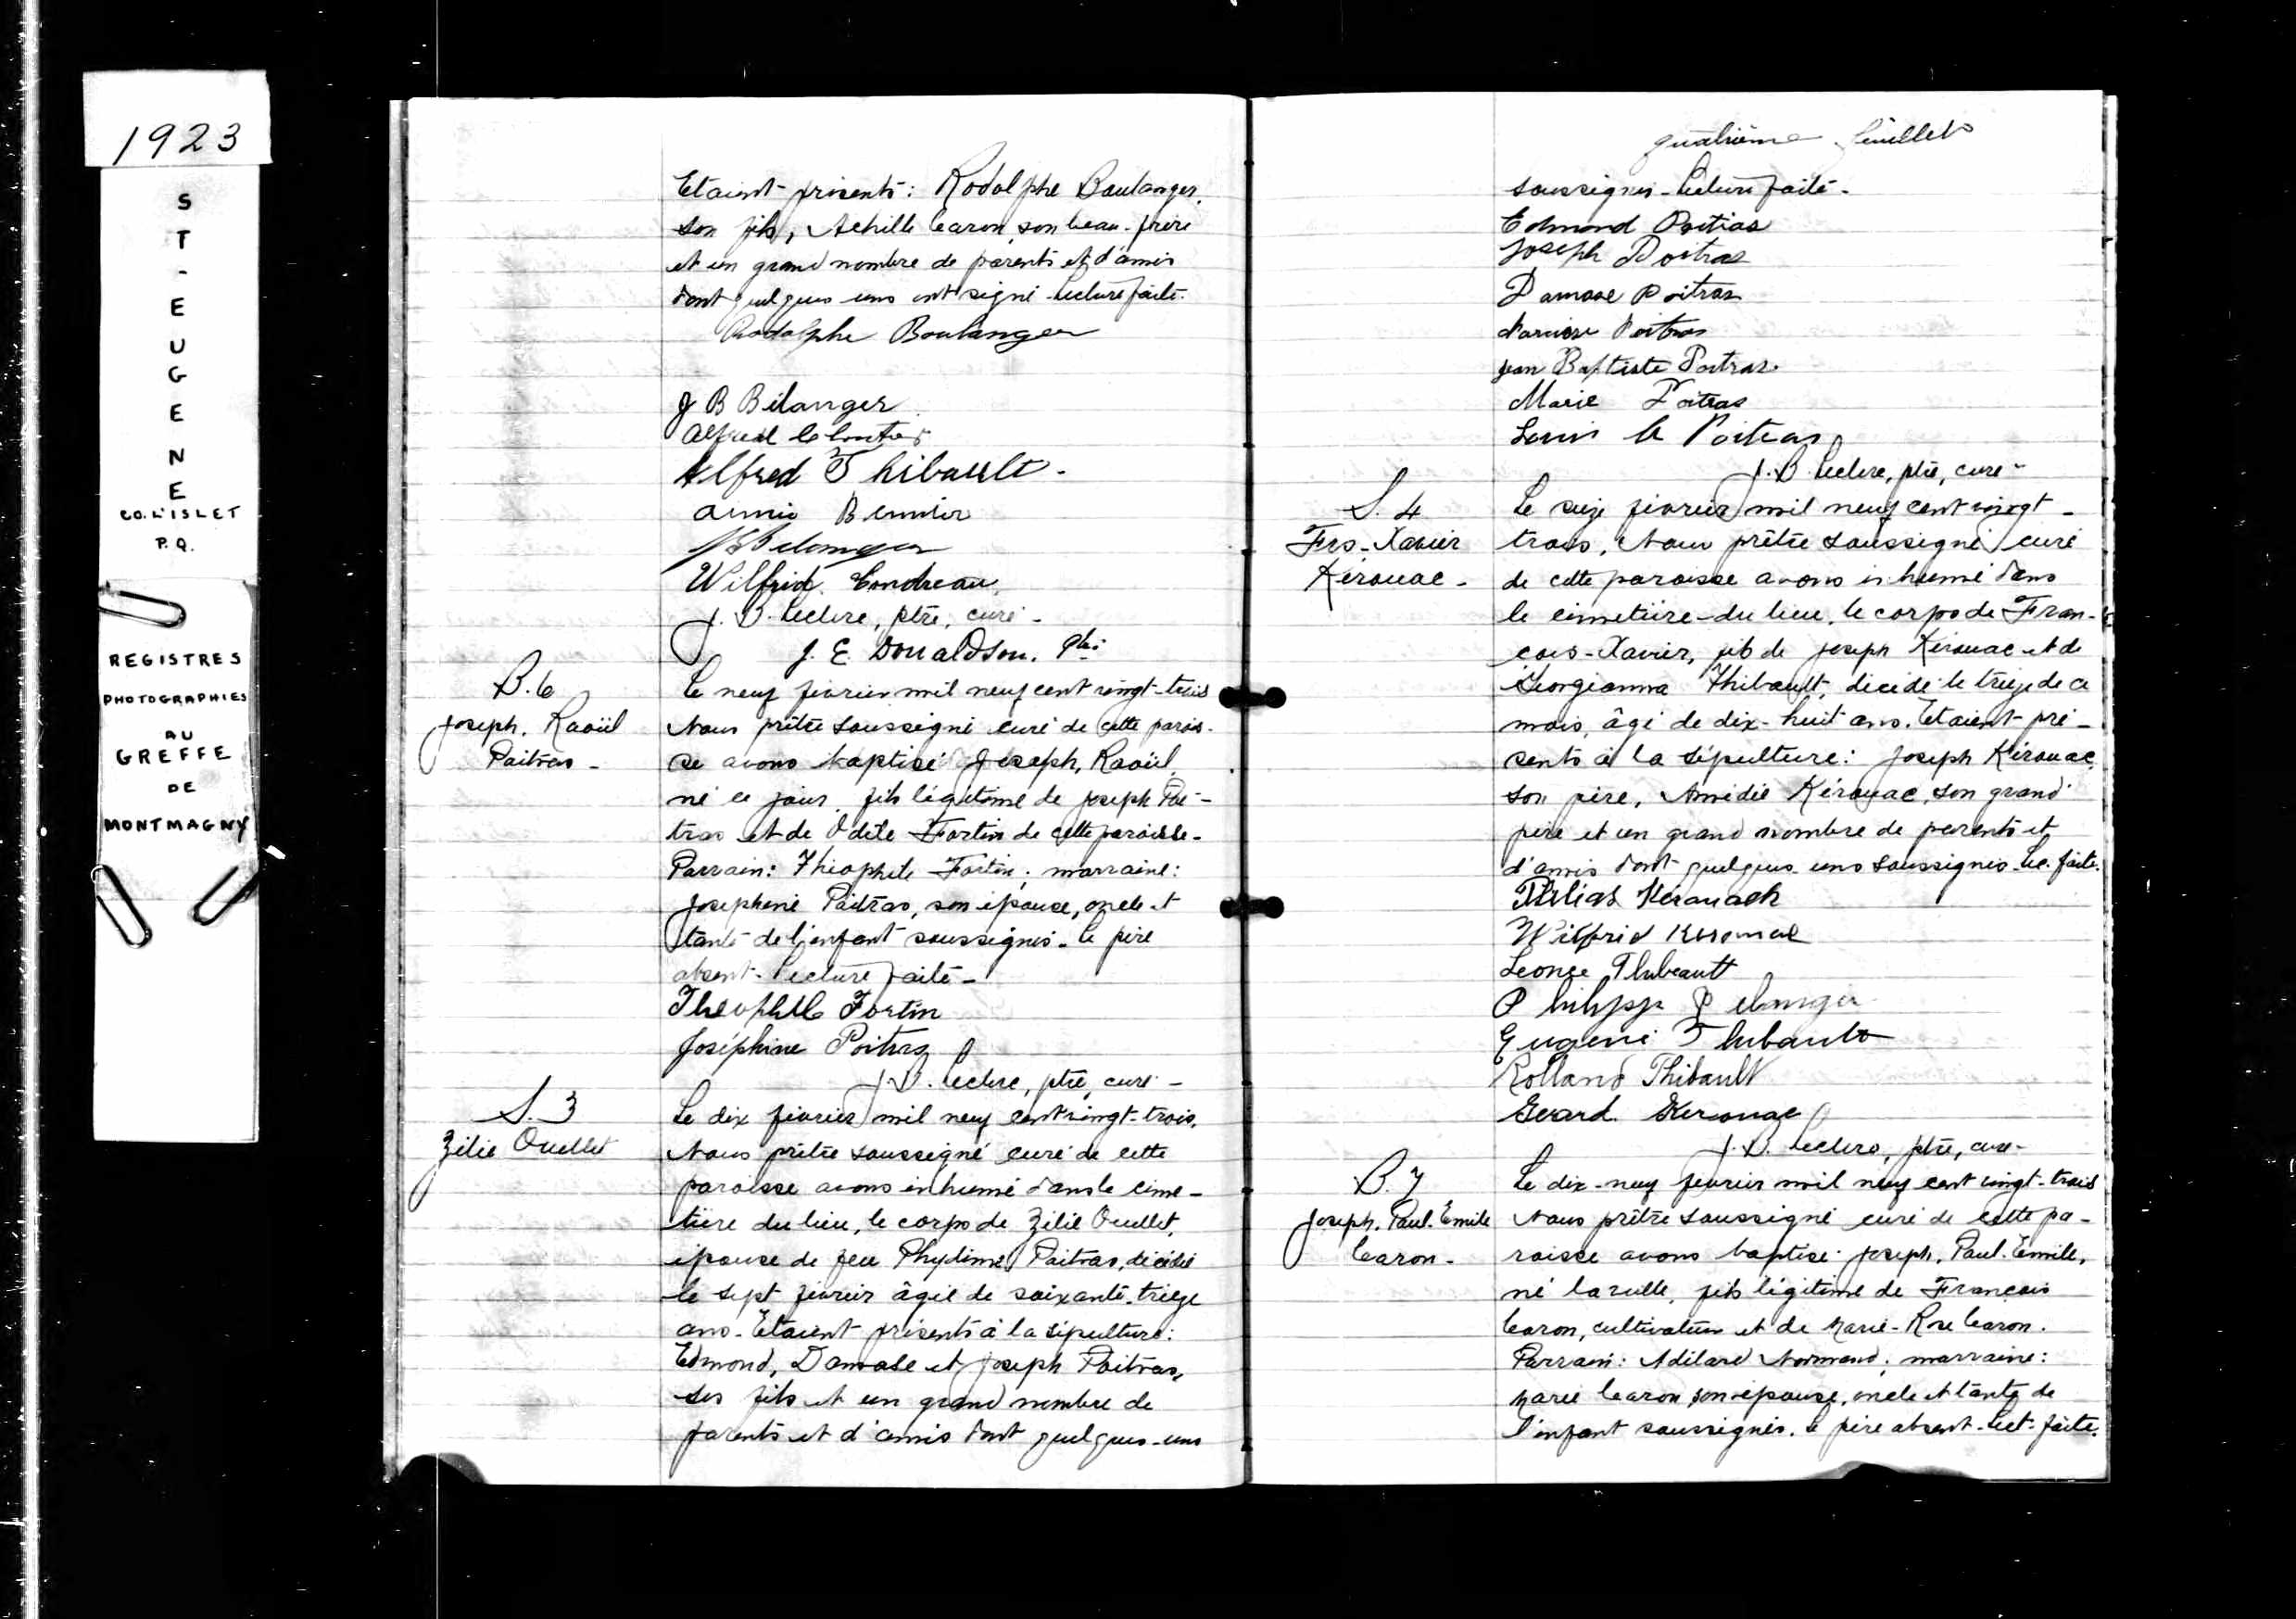 1923
ST-EUGENE
CO. L'ISLET
P.Q.
REGISTRES
PHOTOGRAPHIES
AU
GREFFE
DE
MONTMAGNY
Etaient présents: Rodolphe Boulanger,
son fils, Achille Caron, son beau-frère
et un grand nombre de parents et d'amis
dont quelques uns ont signé. Lecture faite.
Rodolphe Boulanger
J B Bélanger
Alfred Cloutier
Alfred Thibault.
Annie Bernier
Wilfrid Gendreau
J. D. Leclerc, ptre, curé.
J. E. Donaldson.
B. 6
Joseph. Raoül
Poitras.
Le neuf février mil neuf cent vingt-trois
Nous prêtre soussigné curé de cette parois-
se avons baptisé Joseph, Raoül,
né ce jour, fils légitime de Joseph Poi-
tras et de Odile Fortin de cette paroisse.
Parrain: Théophile Fortin; marraine:
Josephine Poitras, son épouse, oncle et
tante de l'enfant soussignés. Le père
absent. Lecture faite.
Theophile Fortin
Joséphine Poitras
J. D. Leclerc, ptre, curé.
S. 3
Zélie Ouellet
Le dix février mil neuf cent vingt-trois,
Nous prêtre soussigné curé de cette
paroisse avons inhumé dans le cime-
tière du lieu, le corps de Zélie Ouellet,
épouse de feu Phydime Poitras, décédée
le sept février âgée de soixante-treize
ans. Etaient présents à la sépulture:
Edmond, Damase et Joseph Poitras,
ses fils et un grand nombre de
parents et d'amis dont quelques-uns
quatrième feuillet
soussignés. Lecture faite.
Edmond Poitras
Joseph Poitras
Damase Poitras
Poitras
Jean Baptiste Poitras
Marie Poitras
Louis Poitras
J. D. Leclerc, ptre, curé.
S. 4
Frs-Xavier
Kérouac.
Le seize février mil neuf cent vingt-
trois, Nous prêtre soussigné curé
de cette paroisse avons inhumé dans
le cimetière du lieu, le corps de Fran-
çois-Xavier, fils de Joseph Kérouac et de
Georgianna Thibault, décédé le treize de ce
mois, âgé de dix-huit ans. Etaient pré-
sents à la sépulture: Joseph Kérouac,
son père, Amédée Kérouac, son grand
père et un grand nombre de parents et
d'amis dont quelques uns soussignés. Lec. faite.
Philias Kérouack
Wilfrid Kerouac
Leonce Thibeault
Philippe Belanger
Eugenie Thibault
Rolland Thibault
Gerard Kerouac
J. D. Leclerc, ptre, curé.
B. 7
Joseph. Paul. Emile
Caron.
Le dix-neuf février mil neuf cent vingt-trois
Nous prêtre soussigné curé de cette pa-
roisse avons baptisé Joseph, Paul-Emile,
né la veille, fils légitime de François
Caron, cultivateur et de Marie-Rose Caron.
Parrain: Adélard Normand; marraine:
Marie Caron son épouse, oncle et tante de
l'enfant soussignés. Le père absent. Lect. faite.